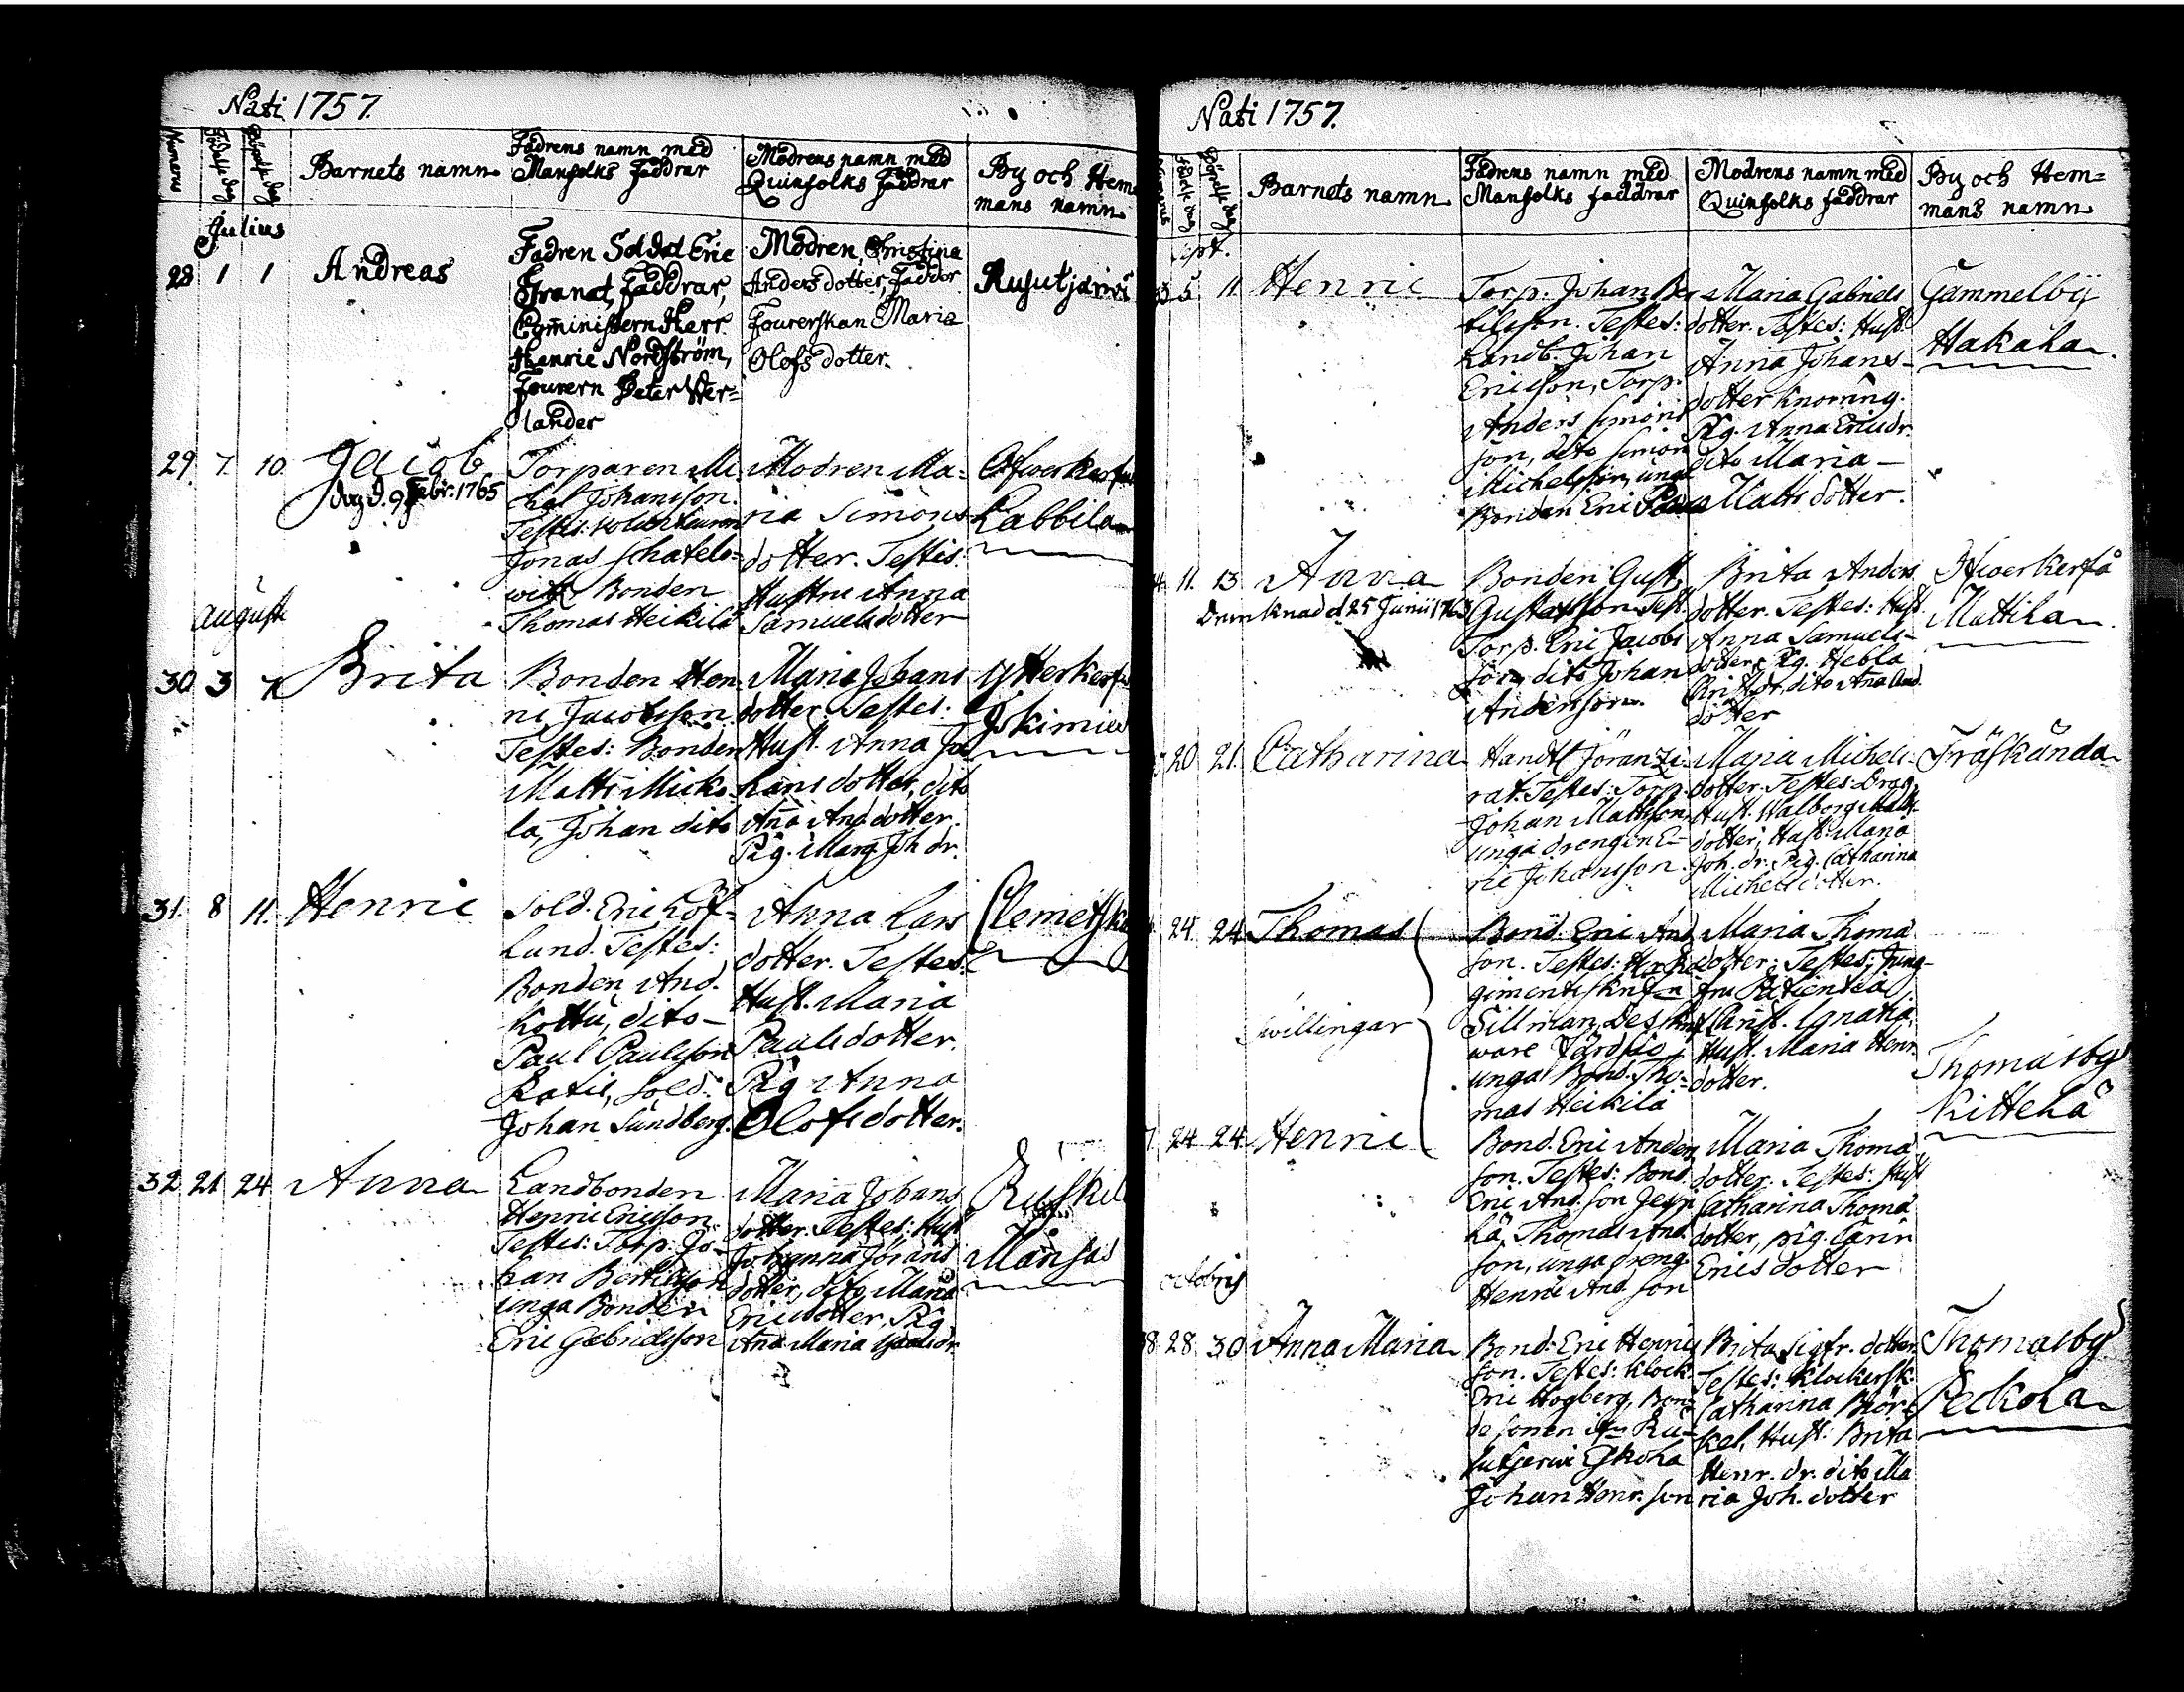 Nati 1757.
Numerus
Födelse dag
Döpelse dag
Barnets namn
Fadrens namn med
Mansfolks faddrar
Modrens namn med
Quinfolks faddrar
By och Hem
mans namn
Julius
28 1 1 Andreas
Fadren Soldat Eric
Granat, faddrar,
Comministern Herr
Henric Nordström,
Fourern Peter Wer=
lander
Modren Christina
Anders dotter, faddor
Fourerskan Maria
Olofs dotter.
Rusutjärvi
29. 7. 10. Jacob
Torparen Mi
chel Johansson.
Testes:
Jonas Schatelo=
witz Bonden
Thomas Heikilä
Modren Ma=
ria Simons
dotter. Testis:
Hustru Anna
Samuelsdotter
Labbila
Augusti
30 3 7 Brita
Bonden Hen
ric Jacobsson.
Testes: Bonden
Matts Micko
la, Johan dito
Maria Johans
dotter. Testes:
Hust. Anna Jo
hans dotter, dito
Aña And dotter.
Pig. Marg. Joh dr.
Ytterkerf
31. 8 11. Henric
Sold. Eric Löf=
lund. Testes:
Bonden And.
Kottu, dito
Paul Paulsson
Sold.
Johan Sundberg.
Anna Lars
dotter. Testes:
Hust. Maria
Paulsdotter.
Pig Anna
Olofsdotter.
Clemetsk
32 21 24 Anna
Landbonden
Henric Ericsson
Testes: Torp. Jo=
han Bertilsson
unga Bonden
Eric Gabrielsson
Maria Johans
dotter. Testes: Hust
Johanna Jörans
dotter, dito Maria
Ericsdotter, Pig
Aña Maria
Ruskil
Månsas
Nati 1757.
Barnets namn
Fadrens namn med
Mansfolks faddrar
Modrens namn med
Quinfolks faddrar
By och Hem=
mans namn
Sept.
5 11 Henric
Torp. Johan Ber
tilsson. Testes:
Landb. Johan
Ericsson, Torp.
Anders Simons
son, dito Simon
Michelsson, unga
Bonden Eric
Maria Gabriels
dotter. Testes: Hust.
Anna Johans
dotter Knorring.
Pig. Anna Ericsdr.
dito Maria
Matts dotter.
Gammelby
Hakala
11. 13. Anna
Drunknad d. 25 Junii
Bonden Gust.
Gustafsson. Test.
Torp. Eric Jacobs
son, dito Johan
Andersson.
Brita Anders
dotter. Testes: Hust.
Anna Samuels
dotter, Pig. Hebla
dito Aña And.
dotter
Öfwerkerfå
Mattila
20 21. Catharina
Testes: Torp.
Johan Mattsson,
unga drengen E=
ric Johansson.
Maria Michels
dotter. Testes: Drag.
Hust. Walborg Matts
dotter, Hust. Maria
Joh. dr. Pig. Catharina
Michelsdotter.
Träskända
24 24 Thomas
Bond. Eric And.
son. Testes:
Sillman
unga Bond. Tho=
mas Heikilä
Maria Thomæ
dotter. Testes: Jung
fru Patientia
Hust. Maria Henr.
dotter.
twillingar
Thomasby
Kittelä
24 24 Henric
Bond. Eric Anders
son. Testes: Bond.
Eric And. son
Thomas And.
son, unga dreng.
Henric And. son
Maria Thomæ
dotter. Testes: Hust
Catharina Thomæ
dotter, pig. Carin
Erics dotter
Octobris
28 30 Anna Maria
Bond. Eric Henrics
son. Testes: Klock.
Eric Högberg, Bon=
de sonen
Johan Henr. son
Brita Sigfr. dotter.
Testes: Klockersk.
Catharina Björ
kel, Hust. Brita
Henr. dr. dito Ma
ria Joh. dotter
Thomasby
Peckola